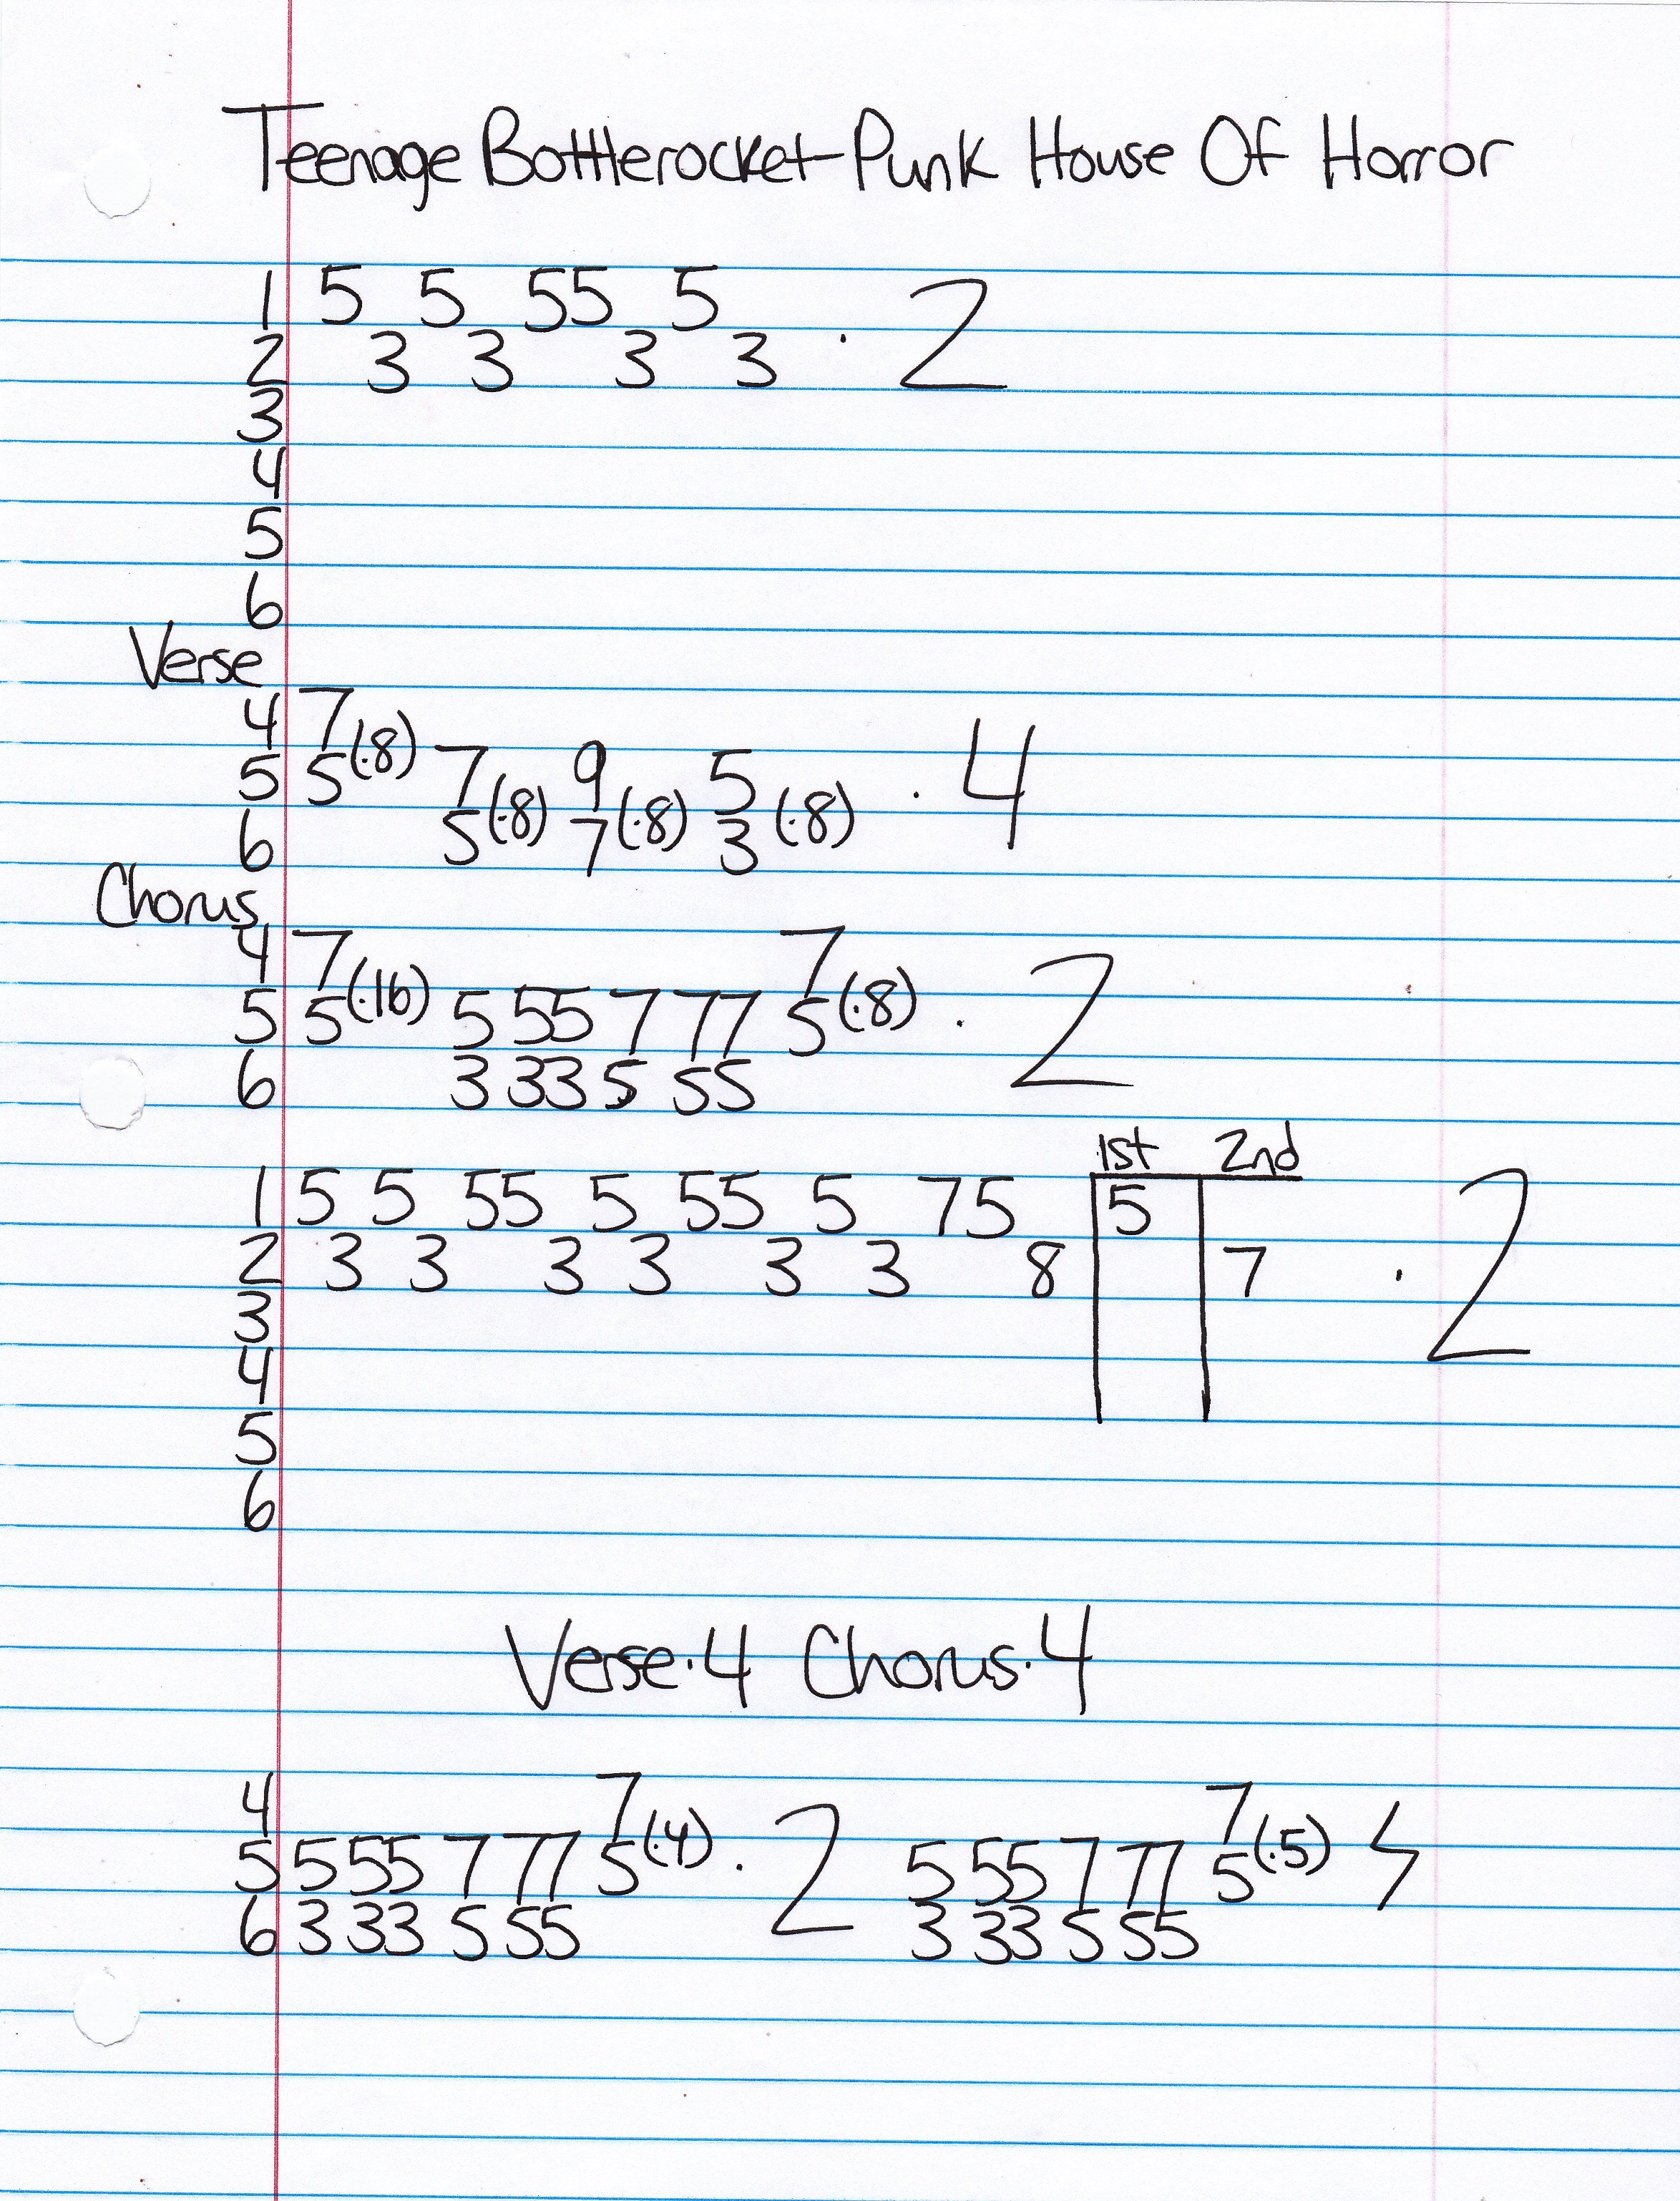 Teenage Bottlerocket-Punk House Of Horror
1 5 5 55 5
2 3 3 3 3 · 2
3
4
5
6
Verse
4 7
5 5(·8) 7 9 5 · 4
6 5(·8) 7(·8) 3(·8)
Chorus
4 7 7
5 5(·16) 5 55 7 77 5(·8) · 2
6 3 33 5 55
1st 2nd
1 5 5 55 5 55 5 75 5
2 3 3 3 3 3 3 8 7 · 2
3
4
5
6
Verse·4 Chorus·4
4 7 7
5 5 55 7 77 5(·4) · 2 5 55 7 77 5(·5)
6 3 33 5 55 3 33 5 55